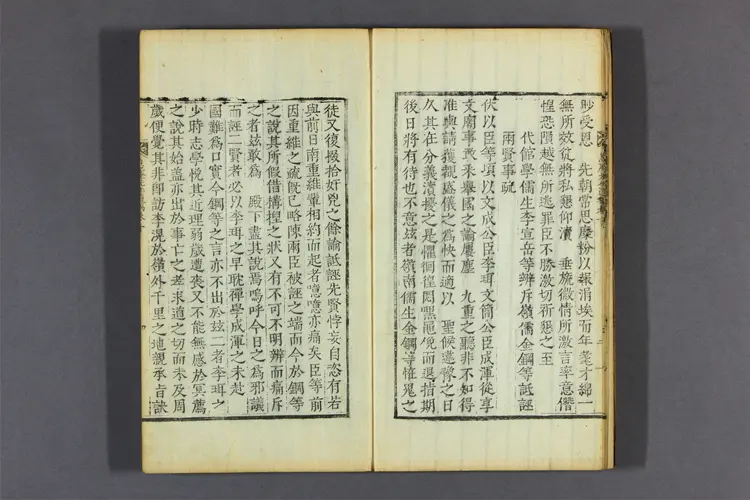 眇受恩　先朝常思糜粉以報涓埃而年耄才綿一
無所效茲將私懇仰瀆　垂旒微情所激言率意僭
惶恐隕越無所逃罪臣不勝激切祈懇之至
代館學儒生李宣岳等辨斥嶺儒金鋼等詆誣
兩賢事疏
伏以臣等頃以文成公臣李珥文簡公臣成渾從享
文廟事敢未舉國之論屢塵　九重之聽非不知得
准與請獲覩盛儀之爲快而適以　聖候違豫之日
久其在分義瀆擾之是懼徊徨悶默黽俛而退指期
後日將有待也不意玆者嶺南儒生金鋼等惟鬼之
徒又復掇拾奸兇之餘論詆誣先賢悖妄自恣有若
與前日南重維輩相約而起者噫噫亦痛矣臣等前
因重維之疏旣已略陳兩臣被誣之端而今於鋼等
之說其所假借構捏之狀又有不可不明辨而痛斥
之者玆敢爲　殿下盡其說焉嗚呼今日之爲邪議
而誣二賢者必以李珥之早耽禪學成渾之未赴
國難爲口實今鋼等之言亦不出於玆二者李珥之
少時志學悅其近理弱歲遭喪又不能無感於冥薦
之說其始盖亦出於事亡之孝求道之切而未及周
歲便覺其非卽訪李滉於嶺外千里之地親承旨訣